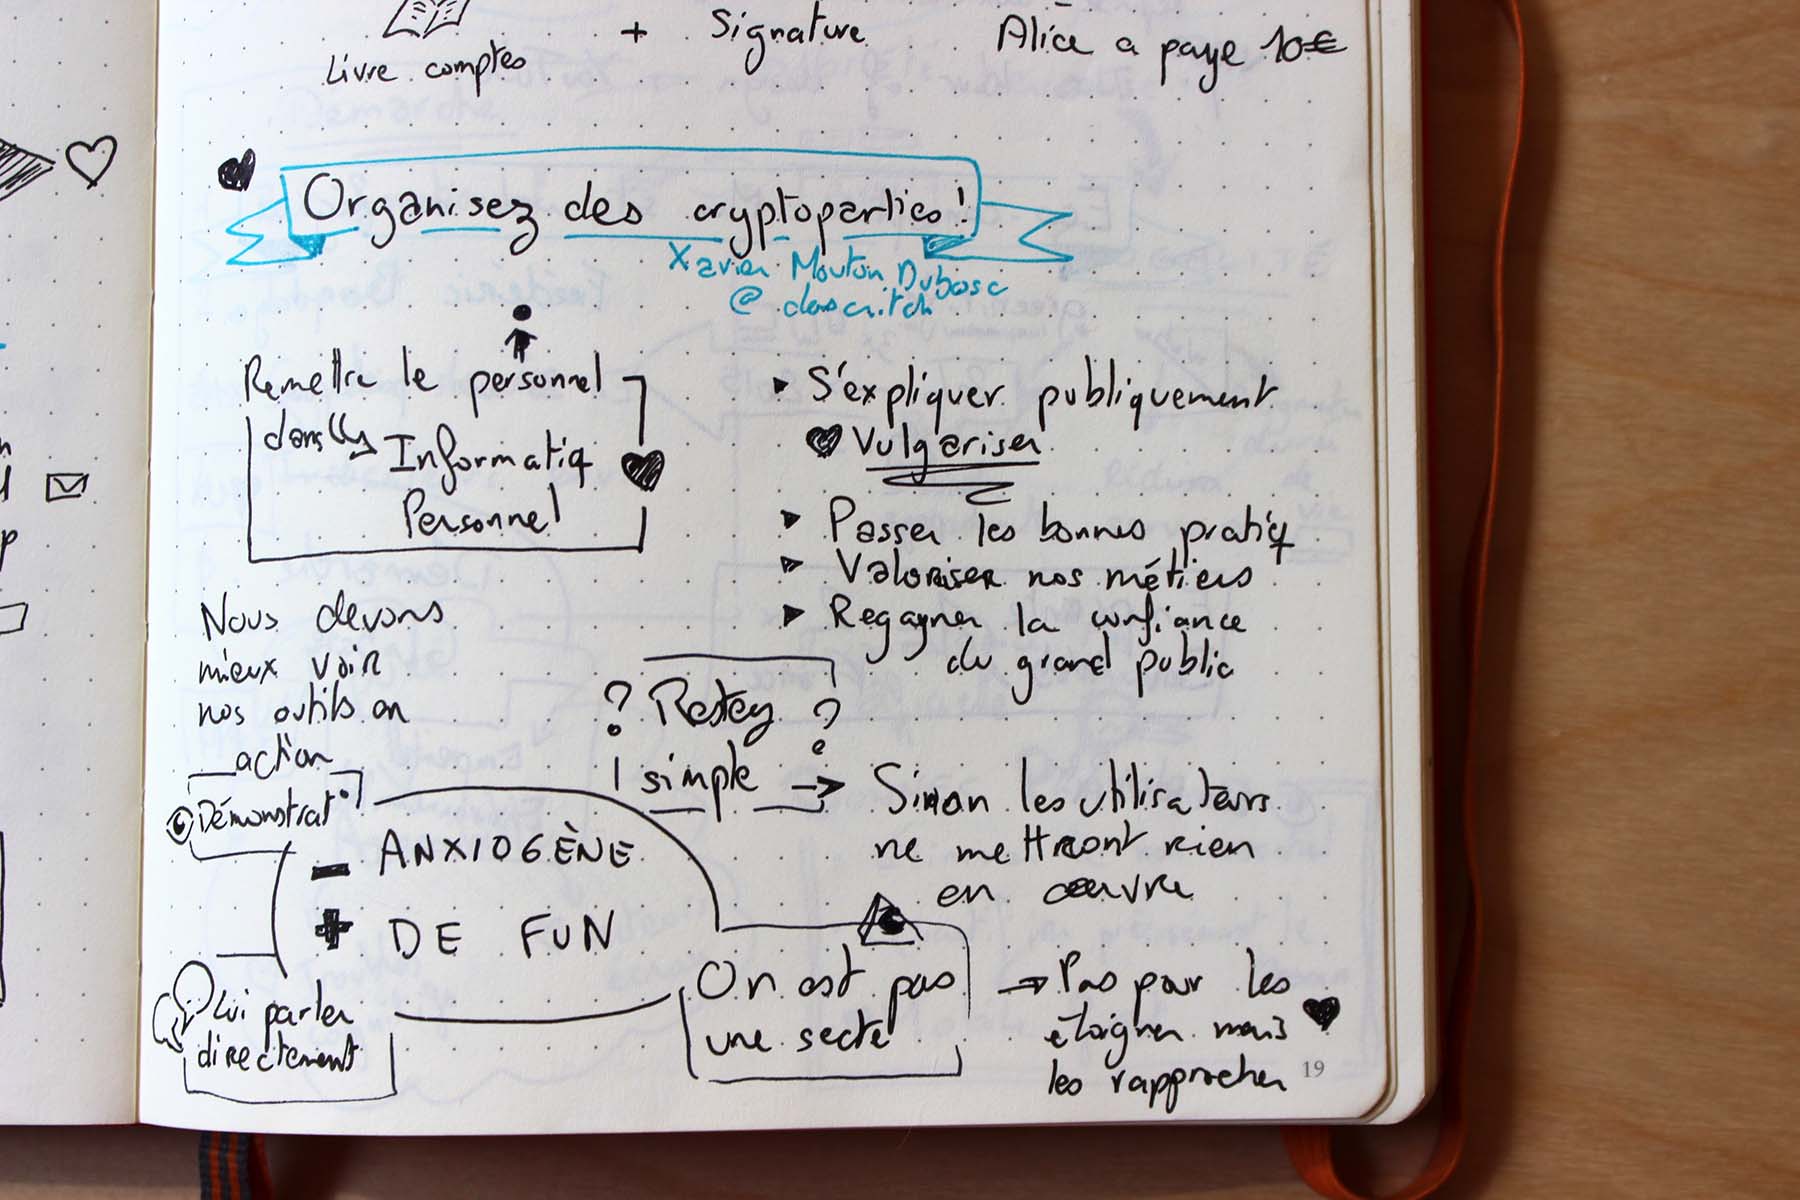 Livre comptes
+ Signature
Alice a paye 10€
Organisez des cryptoparties !
Xavier Mouton Dubosc
@dascritch
Remettre le personnel
dans l'
Informatiq
Personnel
S'expliquer publiquement
Vulgariser
Passer les bonnes pratiq
Valoriser nos métiers
Regagner la confiance
du grand public
Nous devons
mieux voir
nos outils en
action
Démonstrat°
? Restez ?
! simple →
Sinon les utilisateurs
ne mettront rien
en œuvre
- ANXIOGÈNE
+ DE FUN
Lui parler
directement
On est pas
une secte
→ Pas pour les
éloigner mais
les rapprocher
19